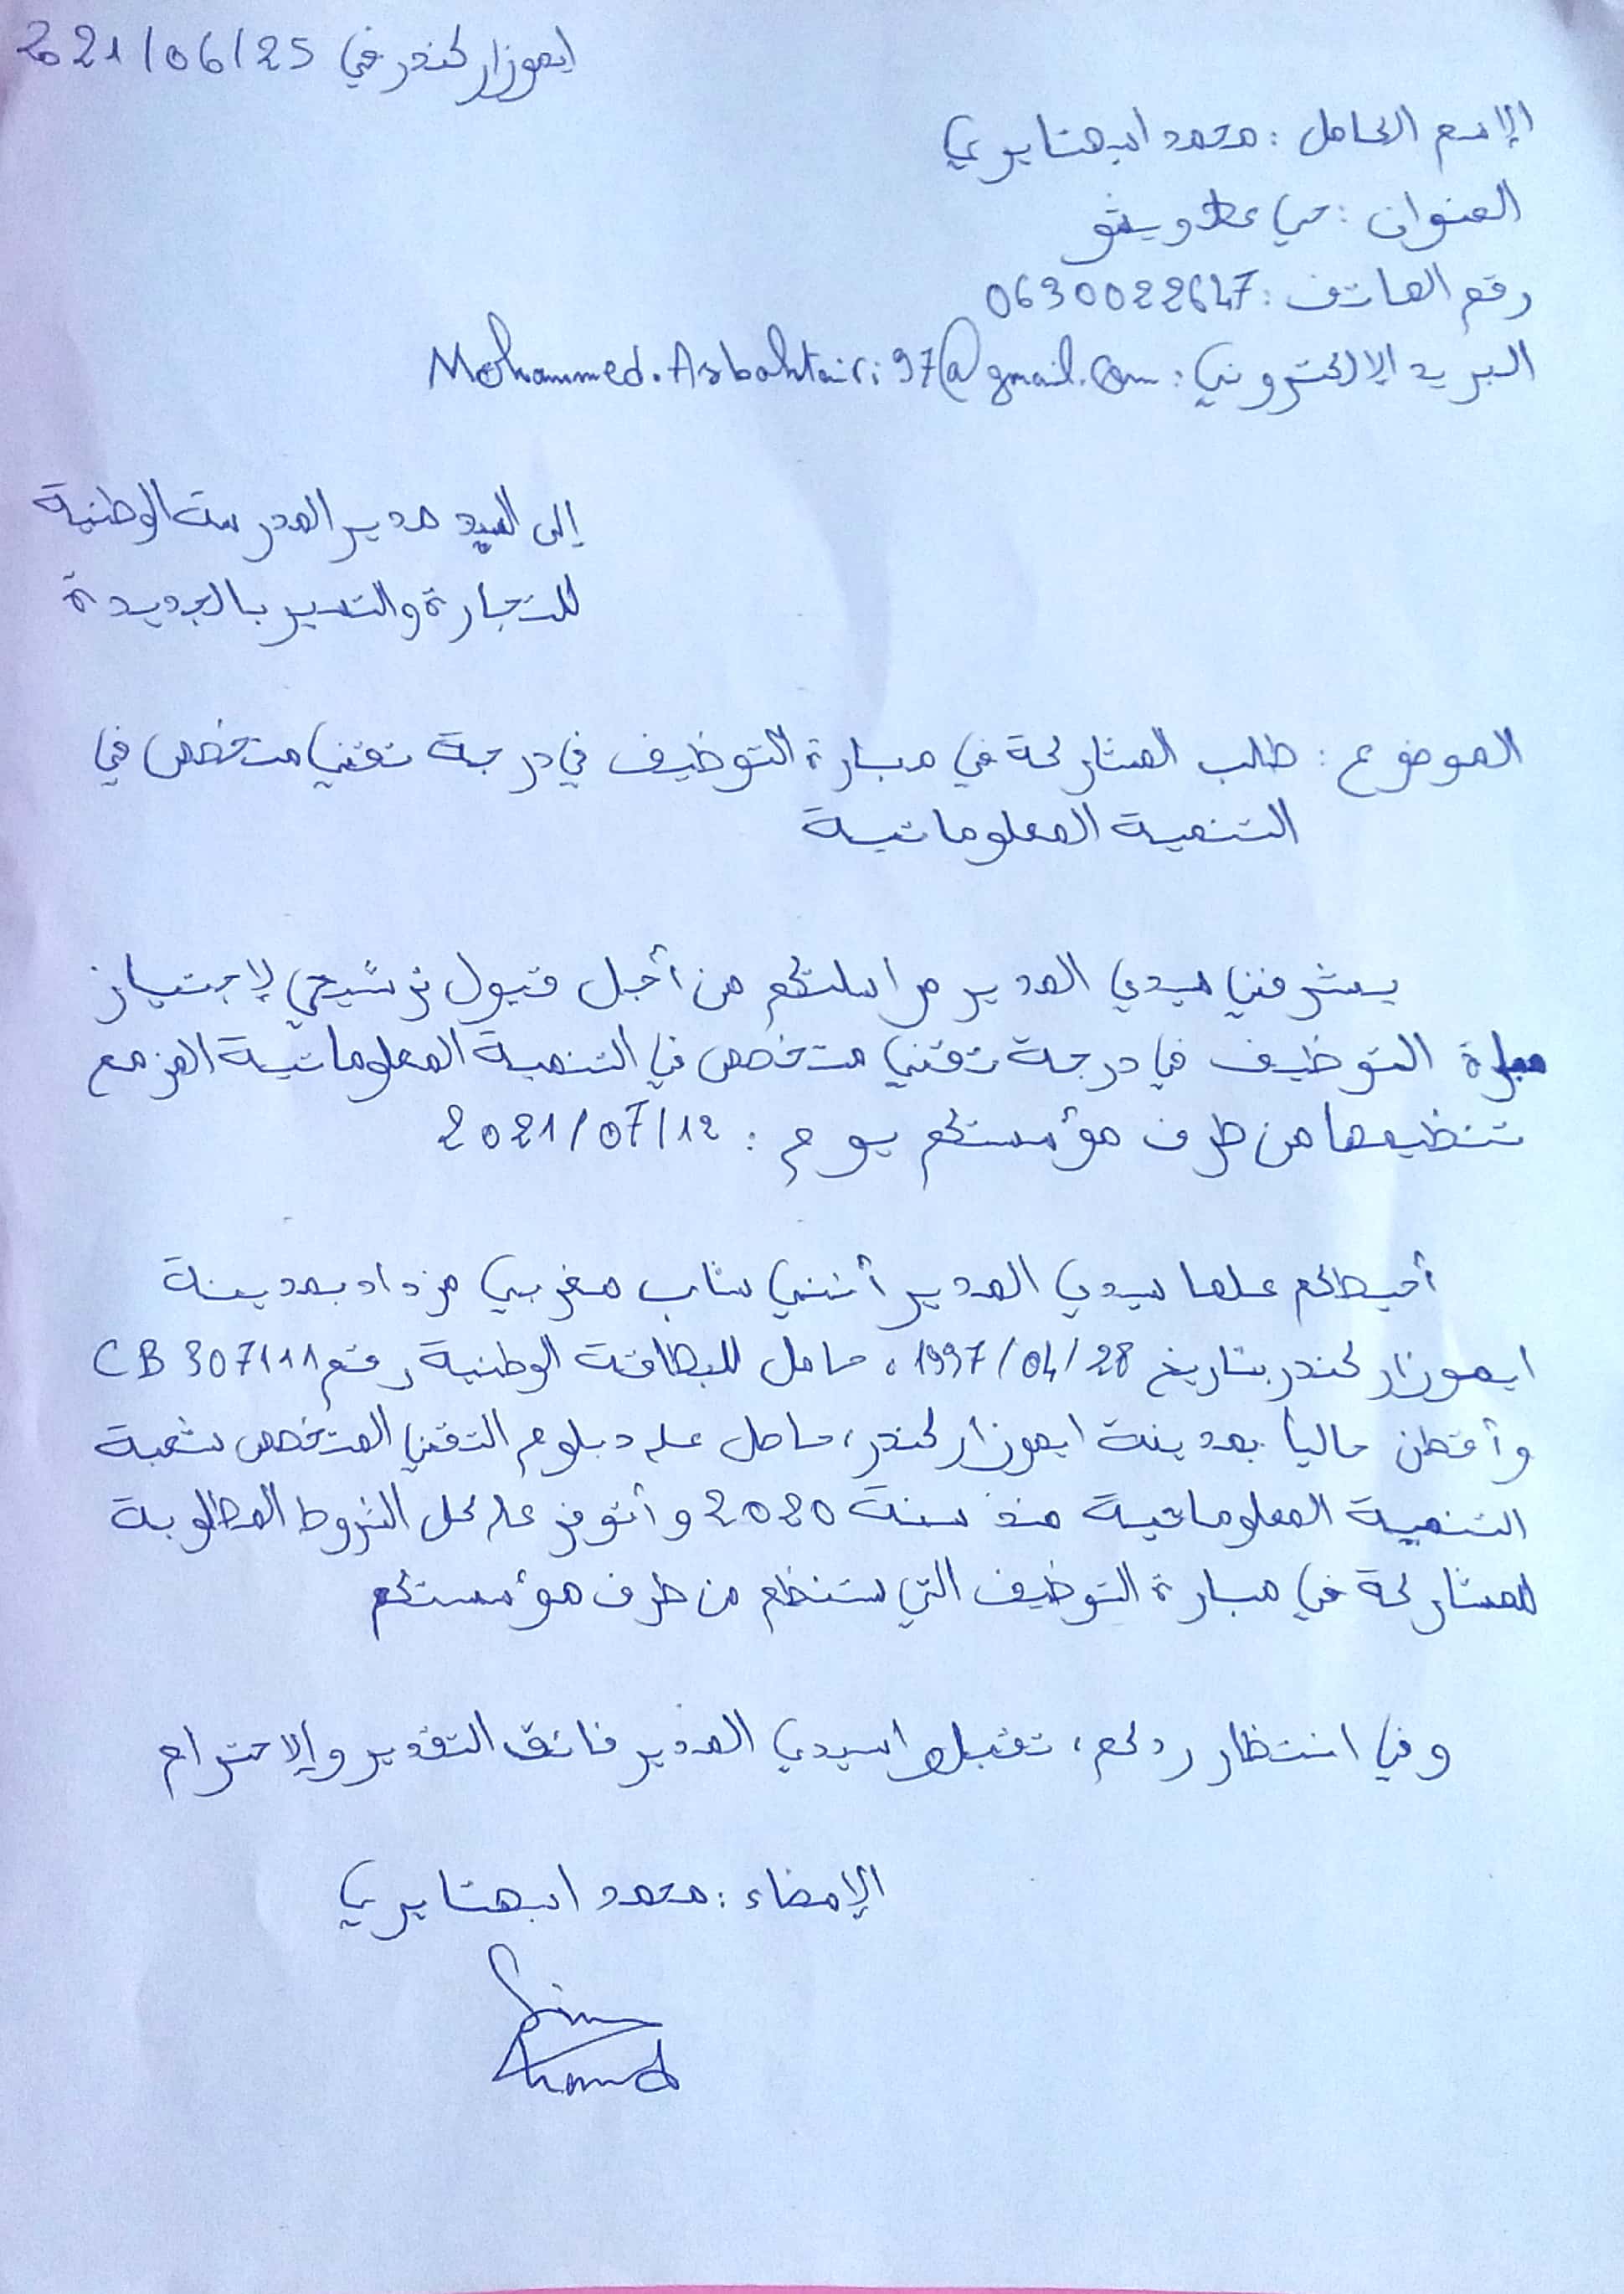 ايموزار كندر في 2021/06/25
الإسم الكامل : محمد اسبهتايري
العنوان : حي
رقم الهاتف : 0630022647
البريد الإلكتروني : Mohammed.Asbahtairi97@gmail.com
إلى السيد مدير المدرسة الوطنية
للتجارة والتسيير بالجديدة
الموضوع : طلب المشاركة في مباراة التوظيف في درجة تقني متخصص في
التنمية المعلوماتية
يشرفني سيدي المدير مراسلتكم من أجل قبول ترشيحي لإجتياز
مباراة التوظيف في درجة تقني متخصص في التنمية المعلوماتية المزمع
تنظيمها من طرف مؤسستكم يوم : 2021/07/12
أحيطكم علما سيدي المدير أنني شاب مغربي مزداد بمدينة
ايموزار كندر بتاريخ 1997/04/28 ، حامل للبطاقة الوطنية رقم CB 307111
وأقطن حاليا بمدينة ايموزار كندر، حاصل على دبلوم التقني المتخصص شعبة
التنمية المعلوماتية منذ سنة 2020 وأتوفر على كل الشروط المطلوبة
للمشاركة في مباراة التوظيف التي ستنظم من طرف مؤسستكم
وفي انتظار ردكم، تقبلوا سيدي المدير فائق التقدير والإحترام
الإمضاء : محمد اسبهتايري